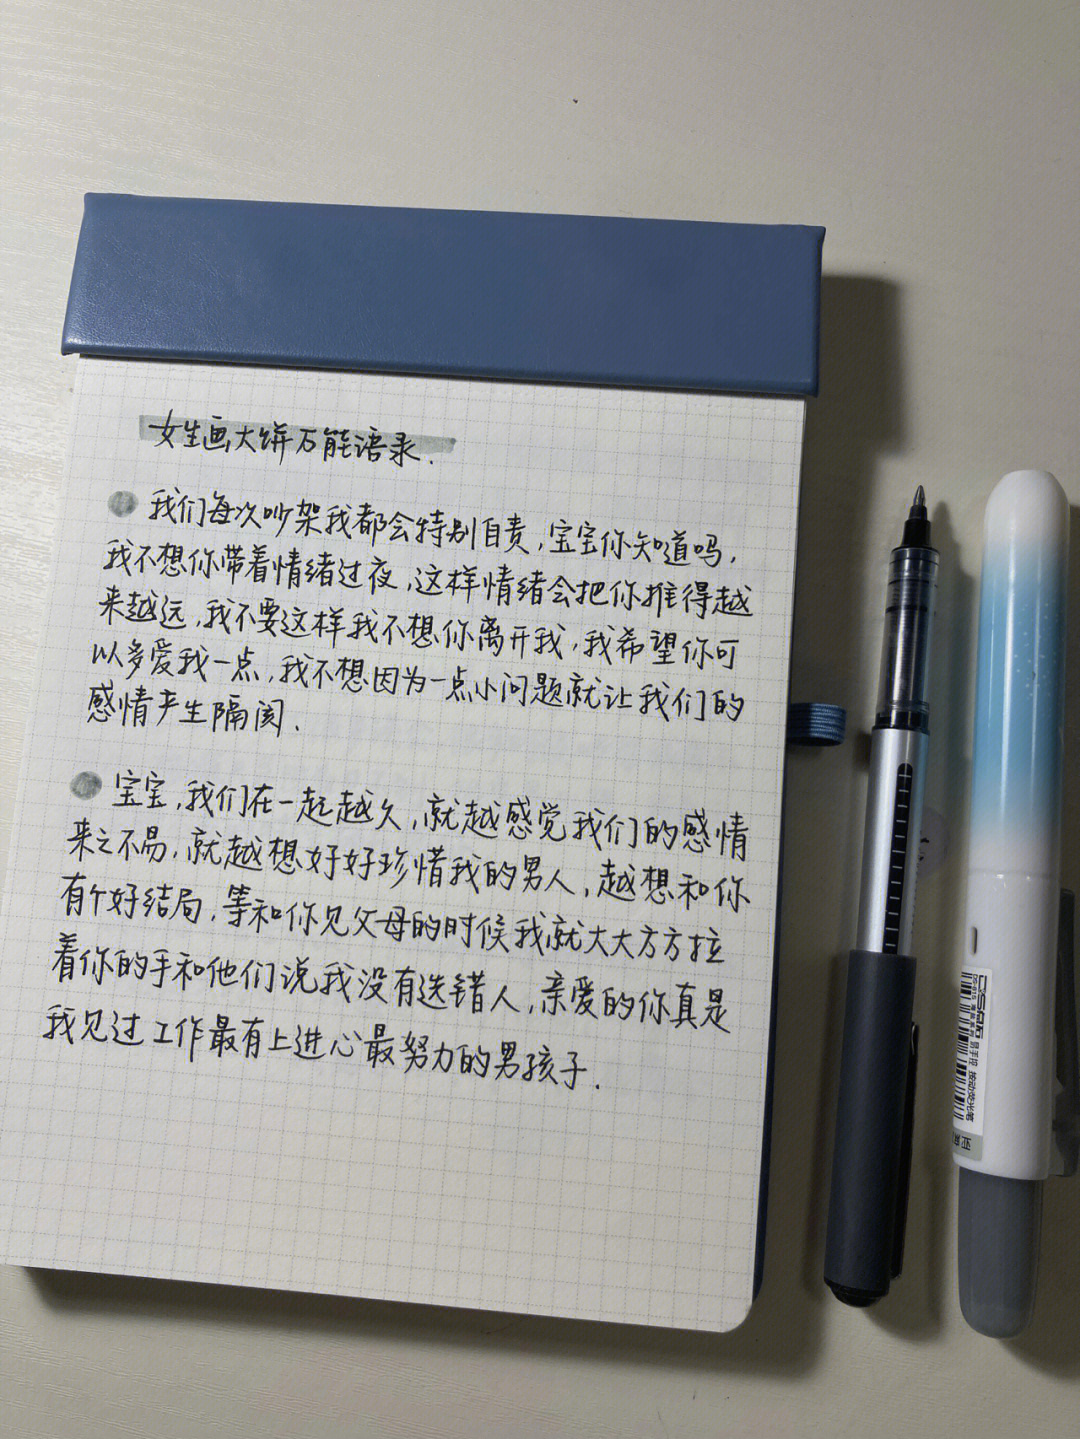 女生画大饼万能语录.
我们每次吵架我都会特别自责,宝宝你知道吗,
我不想你带着情绪过夜,这样情绪会把你推得越
来越远,我不要这样我不想你离开我,我希望你可
以多爱我一点,我不想因为一点小问题就让我们的
感情产生隔阂.
宝宝,我们在一起越久,就越感觉我们的感情
来之不易,就越想好好珍惜我的男人,越想和你
有个好结局,等和你见父母的时候我就大大方方拉
着你的手和他们说我没有选错人,亲爱的你真是
我见过工作最有上进心最努力的男孩子.
按动荧光笔